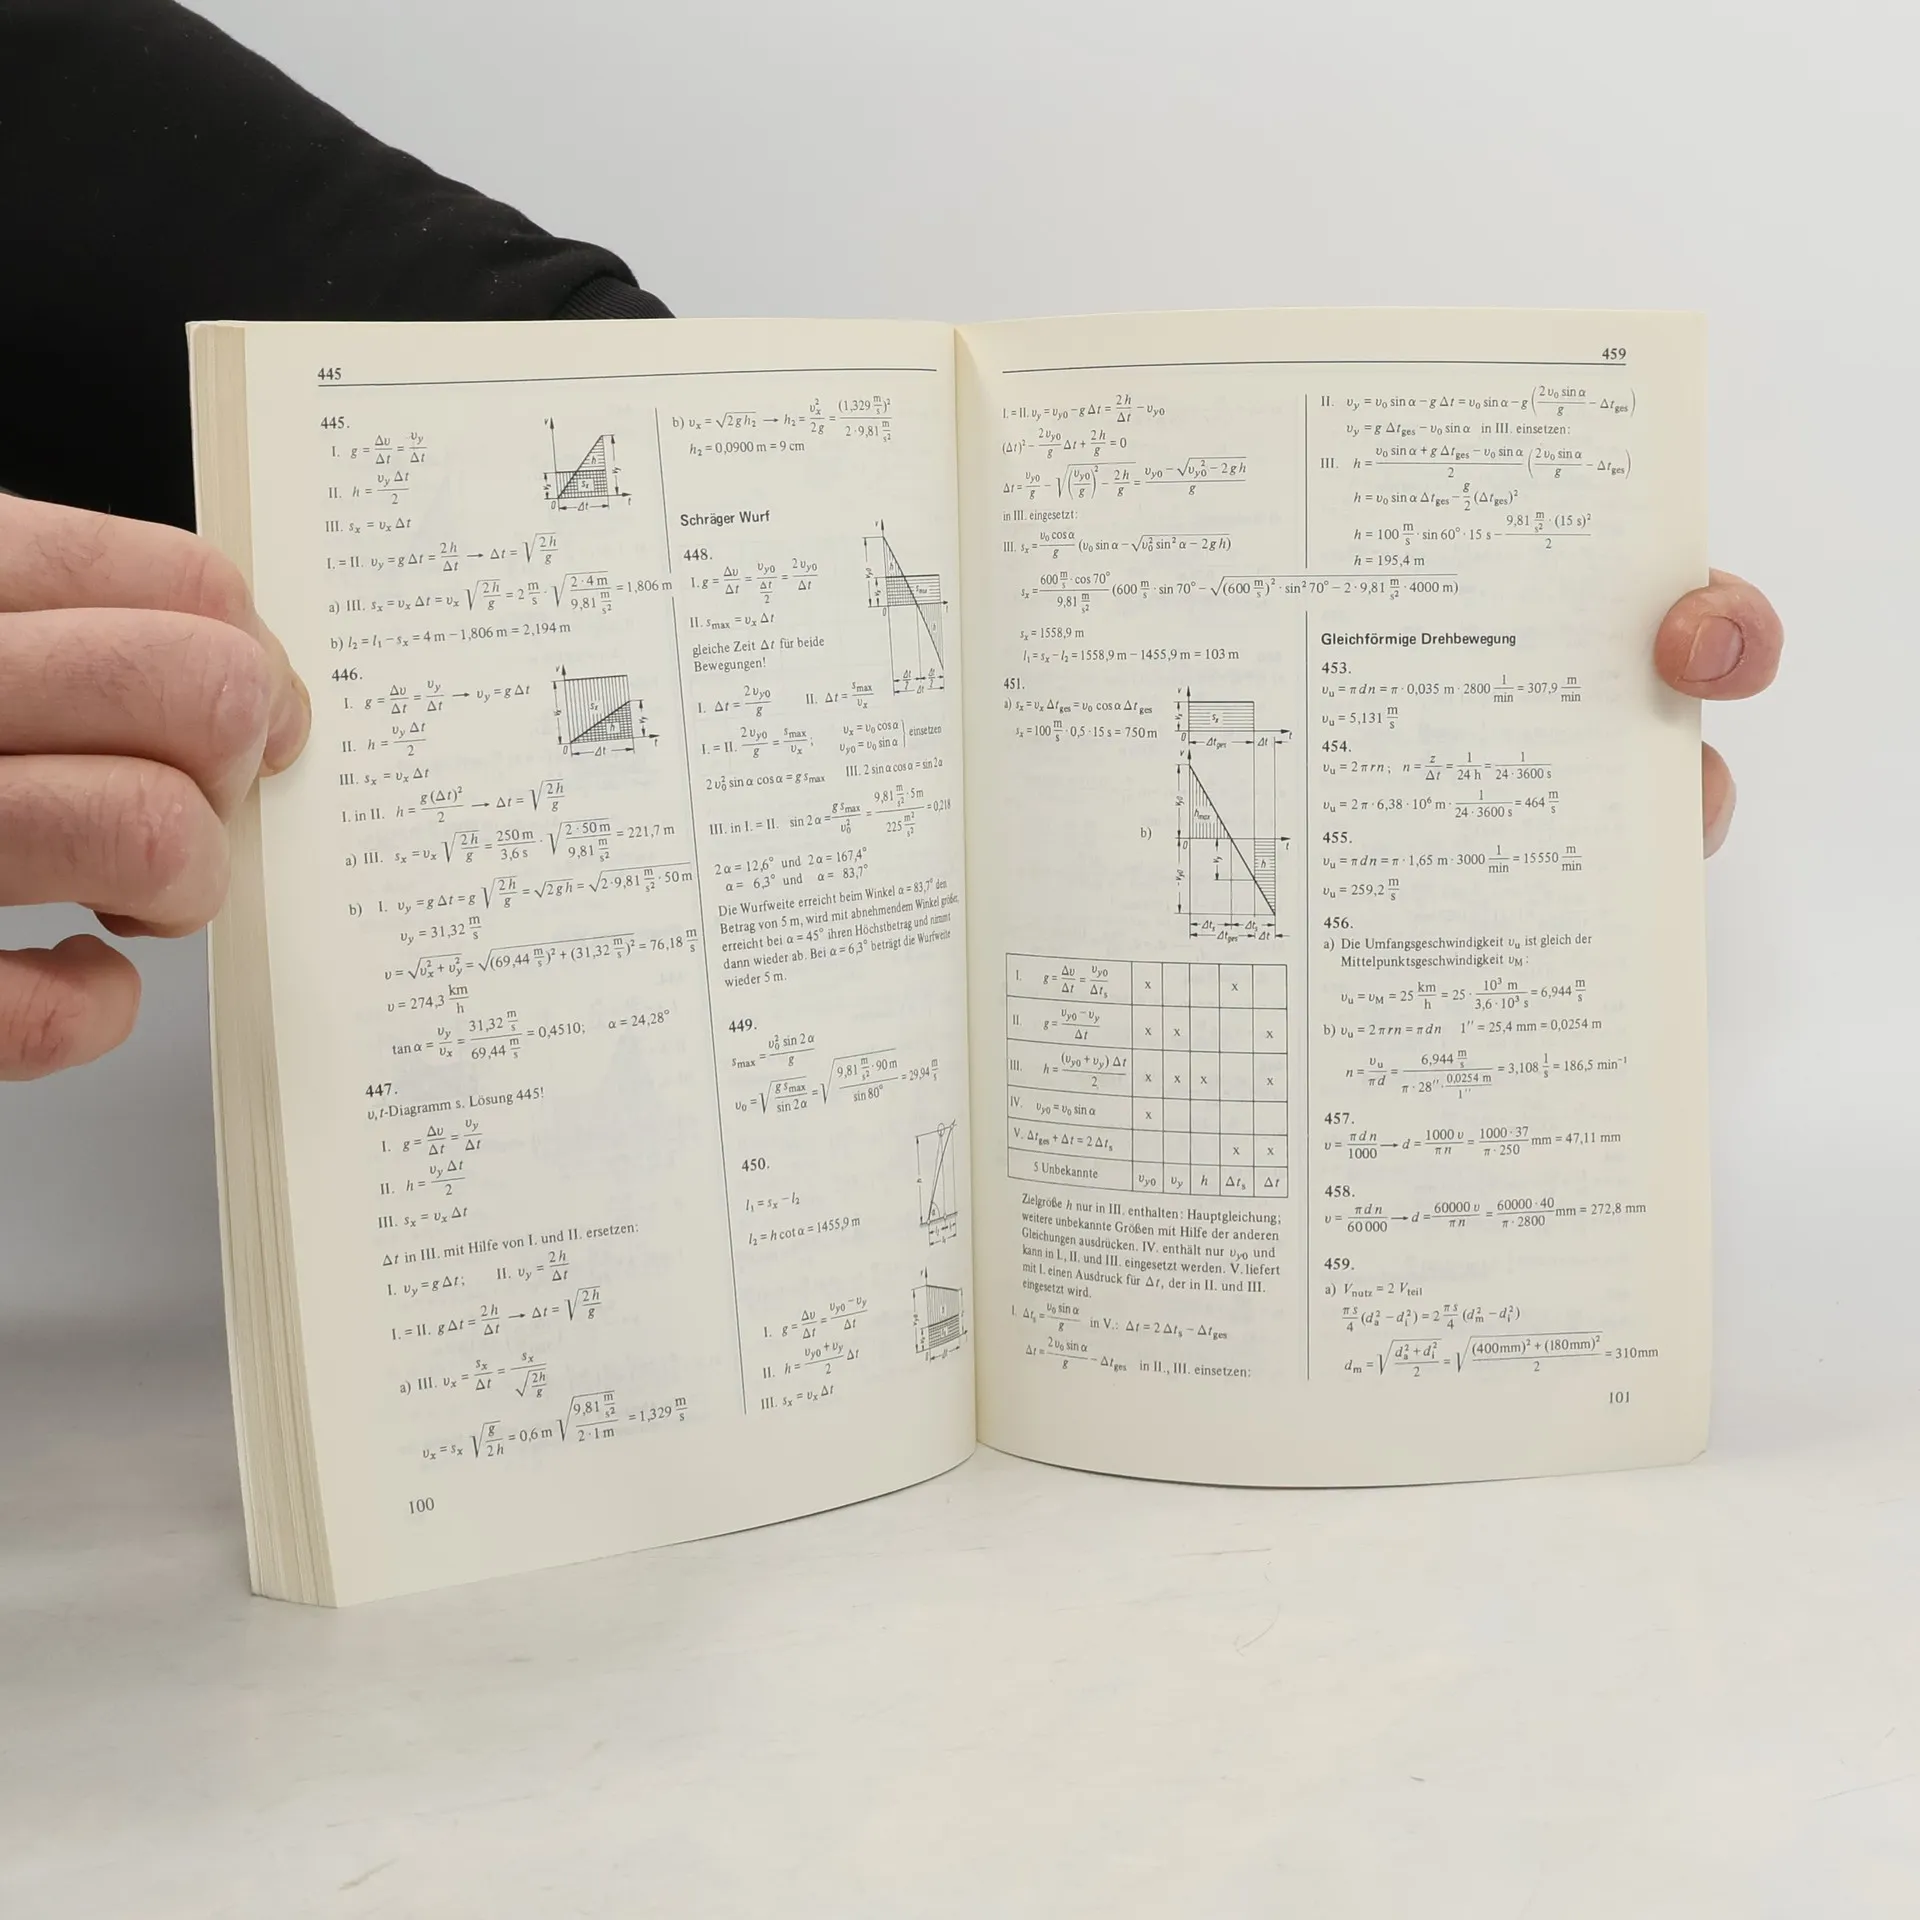 445
445.
I. g = Δυ/Δt = υy/Δt
II. h = υy Δt/2
III. sx = υx Δt
I. = II. υy = g Δt = 2h/Δt → Δt = √(2h/g)
a) III. sx = υx Δt = υx √(2h/g) = 2 m/s · √(2·4 m/9,81 m/s²) = 1,806 m
b) l2 = l1 − sx = 4 m − 1,806 m = 2,194 m
446.
I. g = Δυ/Δt = υy/Δt → υy = g Δt
II. h = υy Δt/2
III. sx = υx Δt
I. in II. h = g(Δt)²/2 → Δt = √(2h/g)
a) III. sx = υx √(2h/g) = 250 m/3,6 s · √(2·50 m/9,81 m/s²) = 221,7 m
b) I. υy = g Δt = g √(2h/g) = √(2gh) = √(2·9,81 m/s² · 50 m)
υy = 31,32 m/s
υ = √(υx² + υy²) = √((69,44 m/s)² + (31,32 m/s)²) = 76,18 m/s
υ = 274,3 km/h
tan α = υy/υx = 31,32 m/s / 69,44 m/s = 0,4510; α = 24,28°
447.
υ,t-Diagramm s. Lösung 445!
I. g = Δυ/Δt = υy/Δt
II. h = υy Δt/2
III. sx = υx Δt
Δt in III. mit Hilfe von I. und II. ersetzen:
I. υy = g Δt; II. υy = 2h/Δt
I. = II. g Δt = 2h/Δt → Δt = √(2h/g)
a) III. υx = sx/Δt = sx/√(2h/g)
υx = sx √(g/2h) = 0,6 m √(9,81 m/s² / 2·1 m) = 1,329 m/s
100
b) υx = √(2gh2) → h2 = υx²/2g = (1,329 m/s)²/(2·9,81 m/s²)
h2 = 0,0900 m = 9 cm
Schräger Wurf
448.
I. g = Δυ/Δt = υy0/(Δt/2) = 2υy0/Δt
II. smax = υx Δt
gleiche Zeit Δt für beide
Bewegungen!
I. Δt = 2υy0/g II. Δt = smax/υx
I. = II. 2υy0/g = smax/υx; υx = υ0 cos α υy0 = υ0 sin α } einsetzen
2υ0² sin α cos α = g smax III. 2 sin α cos α = sin 2α
III. in I. = II. sin 2α = g smax/υ0² = 9,81 m/s² · 5m / 225 m²/s² = 0,218
2α = 12,6° und 2α = 167,4°
α = 6,3° und α = 83,7°
Die Wurfweite erreicht beim Winkel α = 83,7° den
Betrag von 5 m, wird mit abnehmendem Winkel größer,
erreicht bei α = 45° ihren Höchstbetrag und nimmt
dann wieder ab. Bei α = 6,3° beträgt die Wurfweite
wieder 5 m.
449.
smax = υ0² sin 2α/g
υ0 = √(g smax/sin 2α) = √(9,81 m/s² · 90m / sin 80°) = 29,94 m/s
450.
l1 = sx − l2
l2 = h cot α = 1455,9 m
I. g = Δυ/Δt = (υy0 − υy)/Δt
II. h = (υy0 + υy)/2 Δt
III. sx = υx Δt
459
I. = II. υy = υy0 − g Δt = 2h/Δt − υy0
(Δt)² − 2υy0/g Δt + 2h/g = 0
Δt = υy0/g − √((υy0/g)² − 2h/g) = (υy0 − √(υy0² − 2gh))/g
in III. eingesetzt:
III. sx = υ0 cos α/g (υ0 sin α − √(υ0² sin² α − 2gh))
sx = 600 m/s · cos 70° / 9,81 m/s² (600 m/s · sin 70° − √((600 m/s)² · sin² 70° − 2 · 9,81 m/s² · 4000 m))
sx = 1558,9 m
l1 = sx − l2 = 1558,9 m − 1455,9 m = 103 m
451.
a) sx = υx Δtges = υ0 cos α Δtges
sx = 100 m/s · 0,5 · 15 s = 750 m
b)
I. g = Δυ/Δt = υy0/Δts x x
II. g = (υy0 − υy)/Δt x x x
III. h = (υy0 + υy) Δt/2 x x x x
IV. υy0 = υ0 sin α x
V. Δtges + Δt = 2Δts x x
5 Unbekannte υy0 υy h Δts Δt
Zielgröße h nur in III. enthalten: Hauptgleichung;
weitere unbekannte Größen mit Hilfe der anderen
Gleichungen ausdrücken. IV. enthält nur υy0 und
kann in I., II. und III. eingesetzt werden. V. liefert
mit I. einen Ausdruck für Δt, der in II. und III.
eingesetzt wird.
I. Δts = υ0 sin α/g in V.: Δt = 2 Δts − Δtges
Δt = 2υ0 sin α/g − Δtges in II., III. einsetzen:
II. υy = υ0 sin α − g Δt = υ0 sin α − g (2υ0 sin α/g − Δtges)
υy = g Δtges − υ0 sin α in III. einsetzen:
III. h = (υ0 sin α + g Δtges − υ0 sin α)/2 (2υ0 sin α/g − Δtges)
h = υ0 sin α Δtges − g/2 (Δtges)²
h = 100 m/s · sin 60° · 15 s − 9,81 m/s² · (15 s)²/2
h = 195,4 m
Gleichförmige Drehbewegung
453.
υu = π d n = π · 0,035 m · 2800 1/min = 307,9 m/min
υu = 5,131 m/s
454.
υu = 2 π r n; n = z/Δt = 1/24 h = 1/(24 · 3600 s)
υu = 2 π · 6,38 · 10⁶ m · 1/(24 · 3600 s) = 464 m/s
455.
υu = π d n = π · 1,65 m · 3000 1/min = 15550 m/min
υu = 259,2 m/s
456.
a) Die Umfangsgeschwindigkeit υu ist gleich der
Mittelpunktsgeschwindigkeit υM:
υu = υM = 25 km/h = 25 · 10³ m/(3,6 · 10³ s) = 6,944 m/s
b) υu = 2 π r n = π d n 1″ = 25,4 mm = 0,0254 m
n = υu/πd = 6,944 m/s / (π · 28″ · 0,0254 m/1″) = 3,108 1/s = 186,5 min⁻¹
457.
υ = π d n/1000 → d = 1000 υ/π n = 1000 · 37/π · 250 mm = 47,11 mm
458.
υ = π d n/60 000 → d = 60000 υ/π n = 60000 · 40/π · 2800 mm = 272,8 mm
459.
a) Vnutz = 2 Vteil
π s/4 (da² − di²) = 2 π s/4 (dm² − di²)
dm = √((da² + di²)/2) = √(((400mm)² + (180mm)²)/2) = 310mm
101